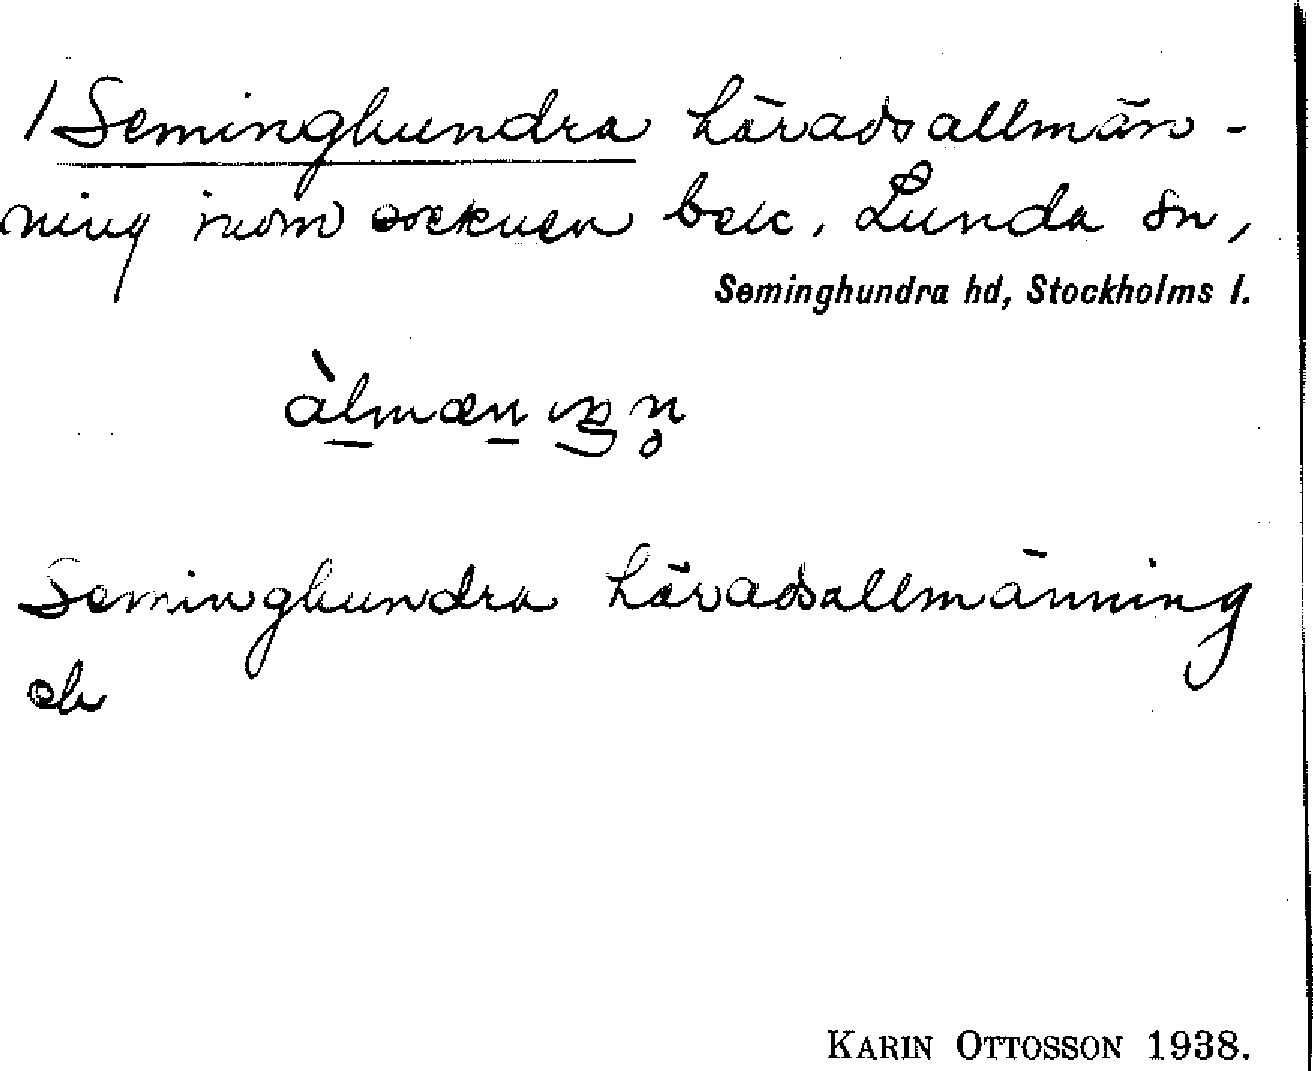 / Seminghundra häradsallmän-
ning inom socknen bek. Lunda sn,
Seminghundra hd, Stockholms l.
àlmænıŋn̥
Seminghundra häradsallmänning
eb
KARIN OTTOSSON 1938.